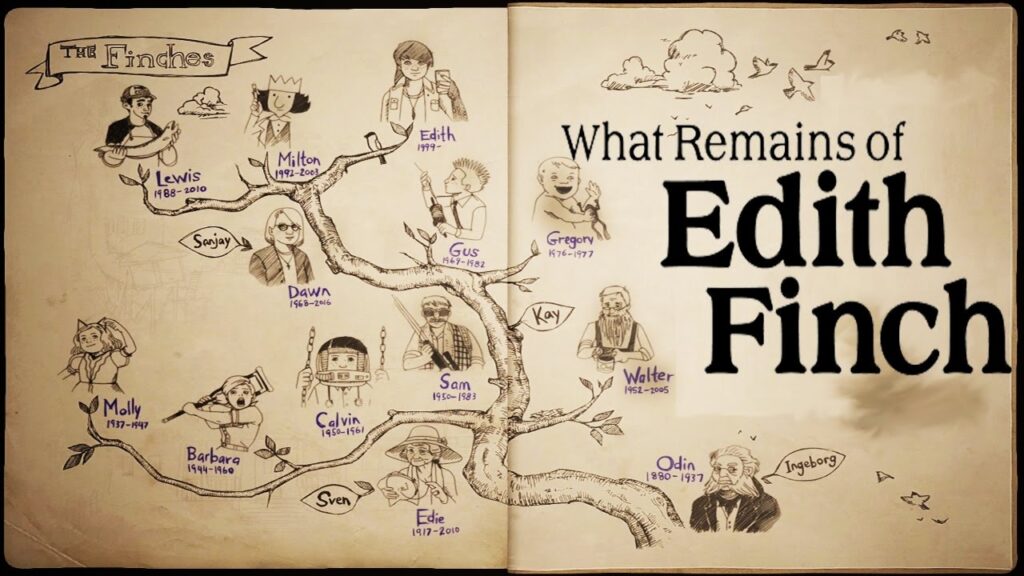 THE Finches
What Remains of
Edith
Finch
Lewis
1988-2010
Milton
1992-2003
Edith
1999-
Sanjay
Dawn
1968-2016
Gus
1969-1982
Gregory
1976-1977
Kay
Molly
1937-1947
Barbara
1944-1960
Calvin
1950-1961
Sam
1950-1983
Walter
1952-2005
Sven
Edie
1917-2010
Odin
1880-1937
Ingeborg